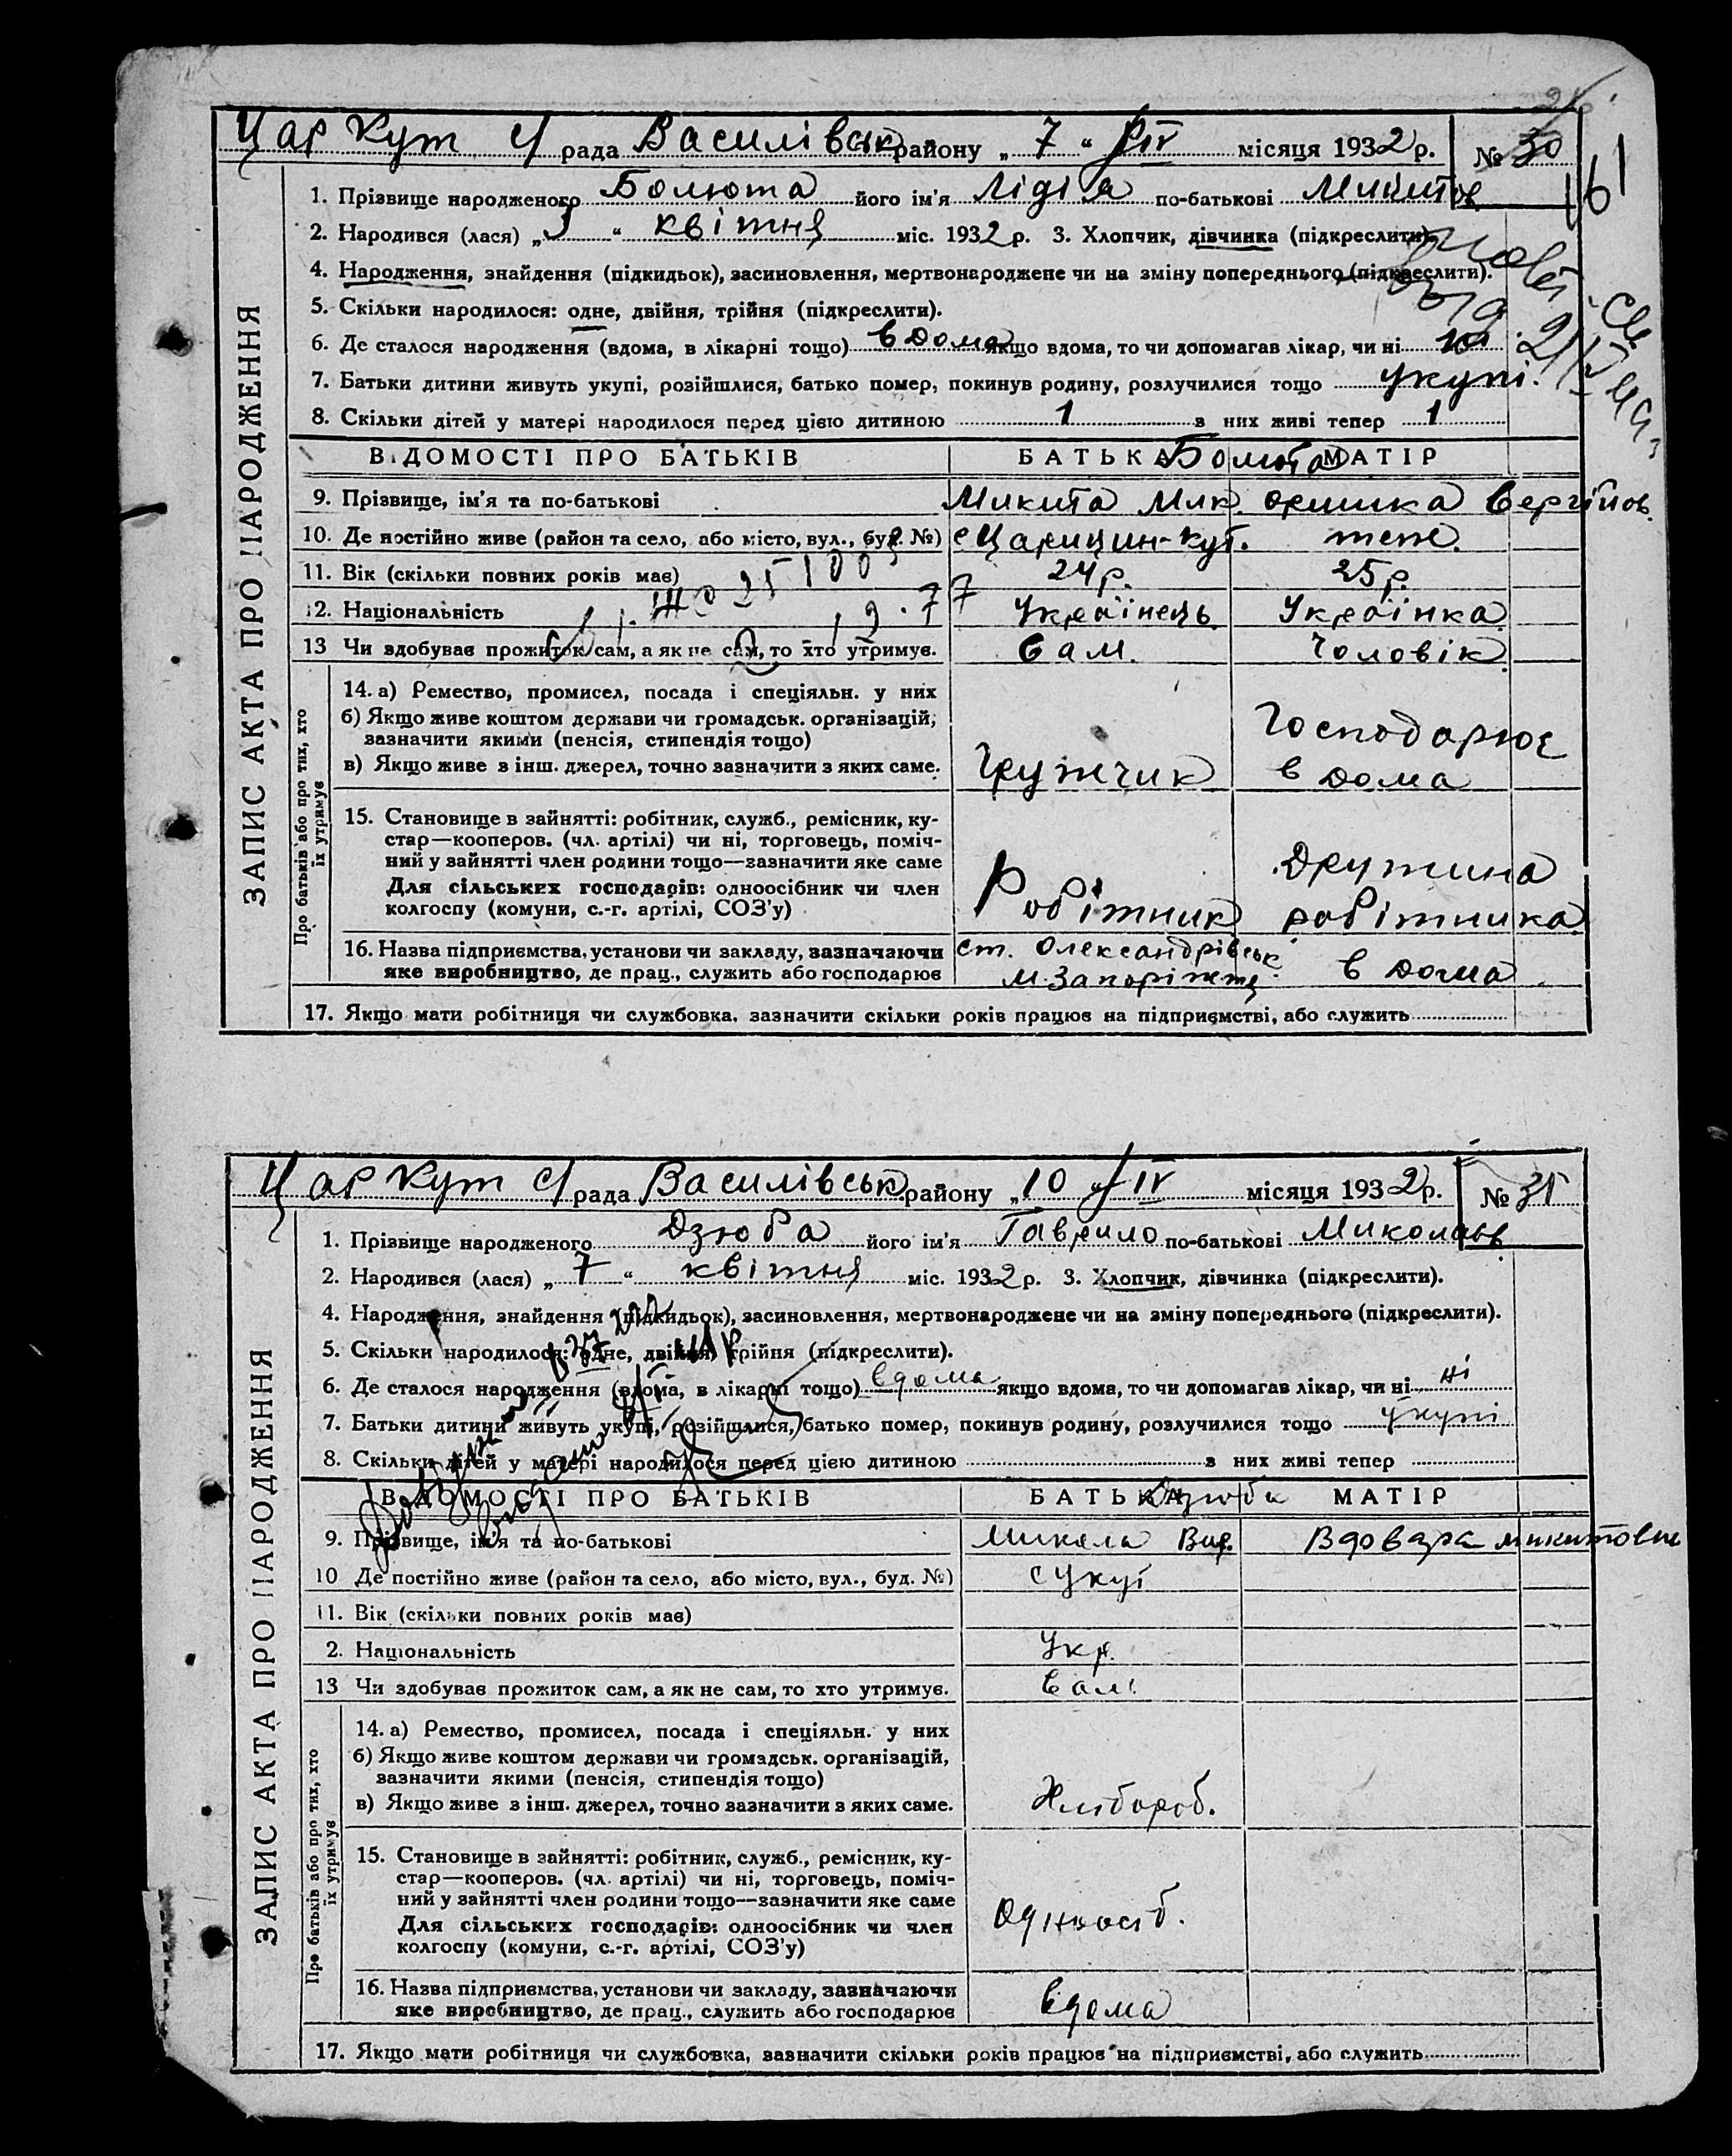 Цар Кут с/рада Василівськ району „ 7 “ IV місяця 1932 р. № 30
161
1. Прізвище народженого Болюта його ім'я Лідія по-батькові Микитов.
2. Народився (лася) „ 3 “ квітня міс. 1932 р. 3. Хлопчик, дівчинка (підкреслити).
4. Народження, знайдення (підкидьок), засиновлення, мертвонароджене чи на зміну попереднього (підкреслити).
5. Скільки народилося: одне, двійня, трійня (підкреслити).
6. Де сталося народження (вдома, в лікарні тощо) в дома якщо вдома, то чи допомагав лікар, чи ні
7. Батьки дитини живуть укупі, розійшлися, батько помер, покинув родину, розлучилися тощо укупі.
8. Скільки дітей у матері народилося перед цією дитиною 1 з них живі тепер 1
ЗАПИС АКТА ПРО НАРОДЖЕННЯ
ВІДОМОСТІ ПРО БАТЬКІВ БАТЬКА Болюта МАТІР
9. Прізвище, ім'я та по-батькові Микита Мик. оришка Вергійов.
10. Де постійно живе (район та село, або місто, вул., буд. №) с Царицин-кут. теж.
11. Вік (скільки повних років має) 24 р. 25 р.
12. Національність Українець. Українка.
13 Чи здобуває прожиток сам, а як не сам, то хто утримує. Сам. Чоловік.
Про батьків або про тих, хто їх утримує
14. а) Ремество, промисел, посада і спеціяльн. у них
б) Якщо живе коштом держави чи громадськ. організацій,
зазначити якими (пенсія, стипендія тощо)
в) Якщо живе з інш. джерел, точно зазначити з яких саме.
Грузчик Господорює
в дома
15. Становище в зайнятті: робітник, служб., ремісник, ку-
стар—кооперов. (чл. артілі) чи ні, торговець, поміч-
ний у зайнятті член родини тощо—зазначити яке саме
Для сільських господарів: одноосібник чи член
колгоспу (комуни, с.-г. артілі, СОЗ'у)
Робітник Дружина
робітника
16. Назва підприємства, установи чи закладу, зазначаючи
яке виробництво, де прац., служить або господарює
ст. Олександрівськ
м. Запоріжжя в дома.
17. Якщо мати робітниця чи службовка, зазначити скільки років працює на підприємстві, або служить
Цар Кут с/рада Василівськ. району „ 10 “ IV місяця 1932 р. № 31
1. Прізвище народженого Дзюба його ім'я Гаврило по-батькові Миколаєв
2. Народився (лася) „ 7 “ квітня міс. 1932 р. 3. Хлопчик, дівчинка (підкреслити).
4. Народження, знайдення (підкидьок), засиновлення, мертвонароджене чи на зміну попереднього (підкреслити).
5. Скільки народилося: одне, двійня, трійня (підкреслити).
6. Де сталося народження (вдома, в лікарні тощо) вдома якщо вдома, то чи допомагав лікар, чи ні ні
7. Батьки дитини живуть укупі, розійшлися, батько помер, покинув родину, розлучилися тощо укупі
8. Скільки дітей у матері народилося перед цією дитиною з них живі тепер
ЗАПИС АКТА ПРО НАРОДЖЕННЯ
ВІДОМОСТІ ПРО БАТЬКІВ БАТЬКА Дзюба МАТІР
9. Прізвище, ім'я та по-батькові Микола
10 Де постійно живе (район та село, або місто, вул., буд. №)
11. Вік (скільки повних років має)
2. Національність Укр.
13 Чи здобуває прожиток сам, а як не сам, то хто утримує. Сам.
Про батьків або про тих, хто їх утримує
14. а) Ремество, промисел, посада і спеціяльн. у них
б) Якщо живе коштом держави чи громадськ. організацій,
зазначити якими (пенсія, стипендія тощо)
в) Якщо живе з інш. джерел, точно зазначити з яких саме.
Хлібороб.
15. Становище в зайнятті: робітник, служб., ремісник, ку-
стар—кооперов. (чл. артілі) чи ні, торговець, поміч-
ний у зайнятті член родини тощо—зазначити яке саме
Для сільських господарів: одноосібник чи член
колгоспу (комуни, с.-г. артілі, СОЗ'у)
Одноосіб.
16. Назва підприємства, установи чи закладу, зазначаючи
яке виробництво, де прац., служить або господарює
вдома
17. Якщо мати робітниця чи службовка, зазначити скільки років працює на підприємстві, або служить